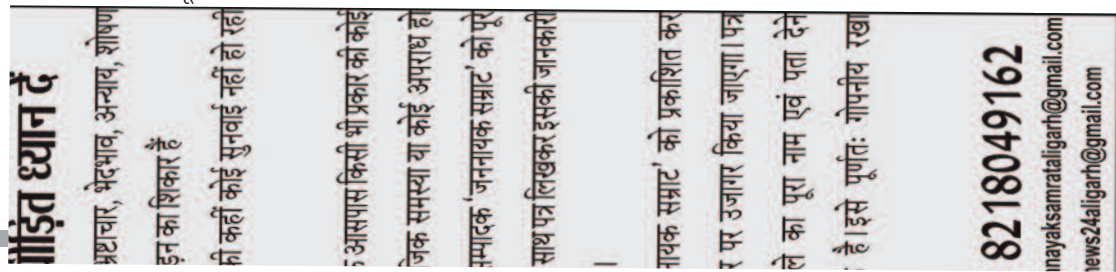 पीड़ित ध्यान दें
भ्रष्टाचार, भेदभाव, अन्याय, शोषण
का शिकार हैं
की कहीं कोई सुनवाई नहीं हो रही
आसपास किसी भी प्रकार की कोई
समस्या या कोई अपराध हो
सम्पादक 'जननायक सम्राट' को पूरे
साथ पत्र लिखकर इसकी जानकारी
सम्राट' को प्रकाशित कर
पर उजागर किया जाएगा। पत्र
का पूरा नाम एवं पता देने
है। इसे पूर्णतः गोपनीय रखा
8218049162
nayaksamrataligarh@gmail.com
news24aligarh@gmail.com